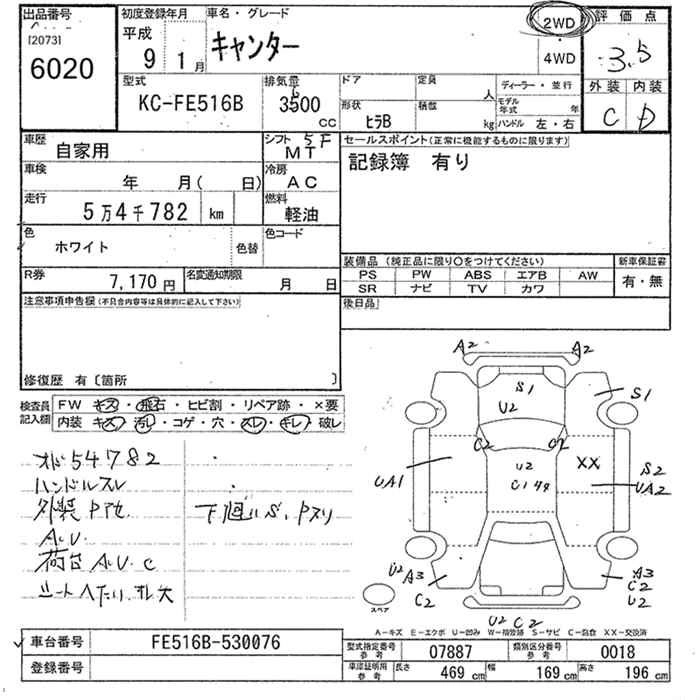 出品番号
[2073]
6020
初度登録年月
平成
9 1月
車名・グレード
キャンター
2WD
4WD
評価点
3.5
外装 内装
C D
型式
KC-FE516B
排気量
3500
cc
ドア
定員
人
形状
ﾋﾗB
積載
kg
ディーラー・並行
モデル年式 年
ハンドル 左・右
車歴
自家用
シフト 5F
MT
車検
年 月( 日)
冷房
AC
走行
5万4千782 km
燃料
軽油
色
ホワイト
色替
色コード
R券
7,170円
名変通知期限
月 日
セールスポイント(正常に機能するものに限ります)
記録簿 有り
装備品 (純正品に限り○をつけてください)
PS PW ABS エアB AW
SR ナビ TV カワ
新車保証書
有・無
後日品
注意事項申告欄(不具合内容等は具体的に記入して下さい)
修復歴 有〔箇所 〕
検査員記入欄
FW キズ・飛石・ヒビ割・リペア跡・×要
内装 キズ・汚レ・コゲ・穴・スレ・キレ・破レ
オド54782
ハンドルスレ
外装
A.U.
荷台 A.U.C
シートへたり、キレ大
下廻りS.
A2 A2
S1
S1
U2
C2 C2
UA1
U2
XX
S2
UA2
U2 A3
C2
A3
C2
U2
U2 C2
スペア
A-キズ E-エクボ U-凹み W-補修跡 S-サビ C-腐食 XX-交換済
車台番号
FE516B-530076
登録番号
型式指定番号 参考
07887
類別区分番号 参考
0018
車庫証明用 参考
長さ 469 cm
幅 169 cm
高さ 196 cm